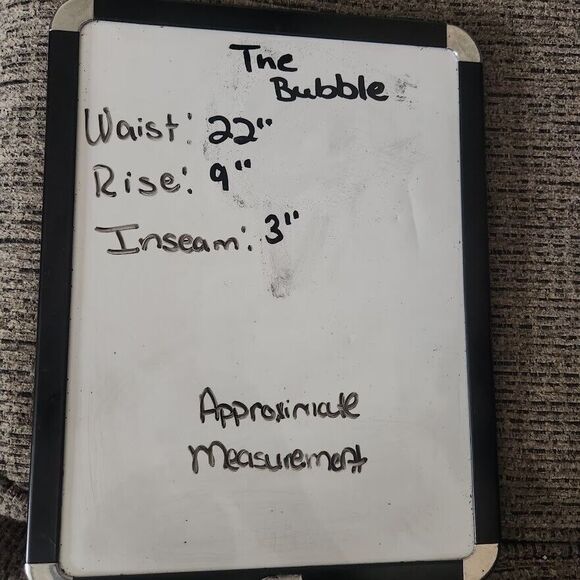 The
Bubble
Waist: 22"
Rise: 9"
Inseam: 3"
Approximate
Measurement